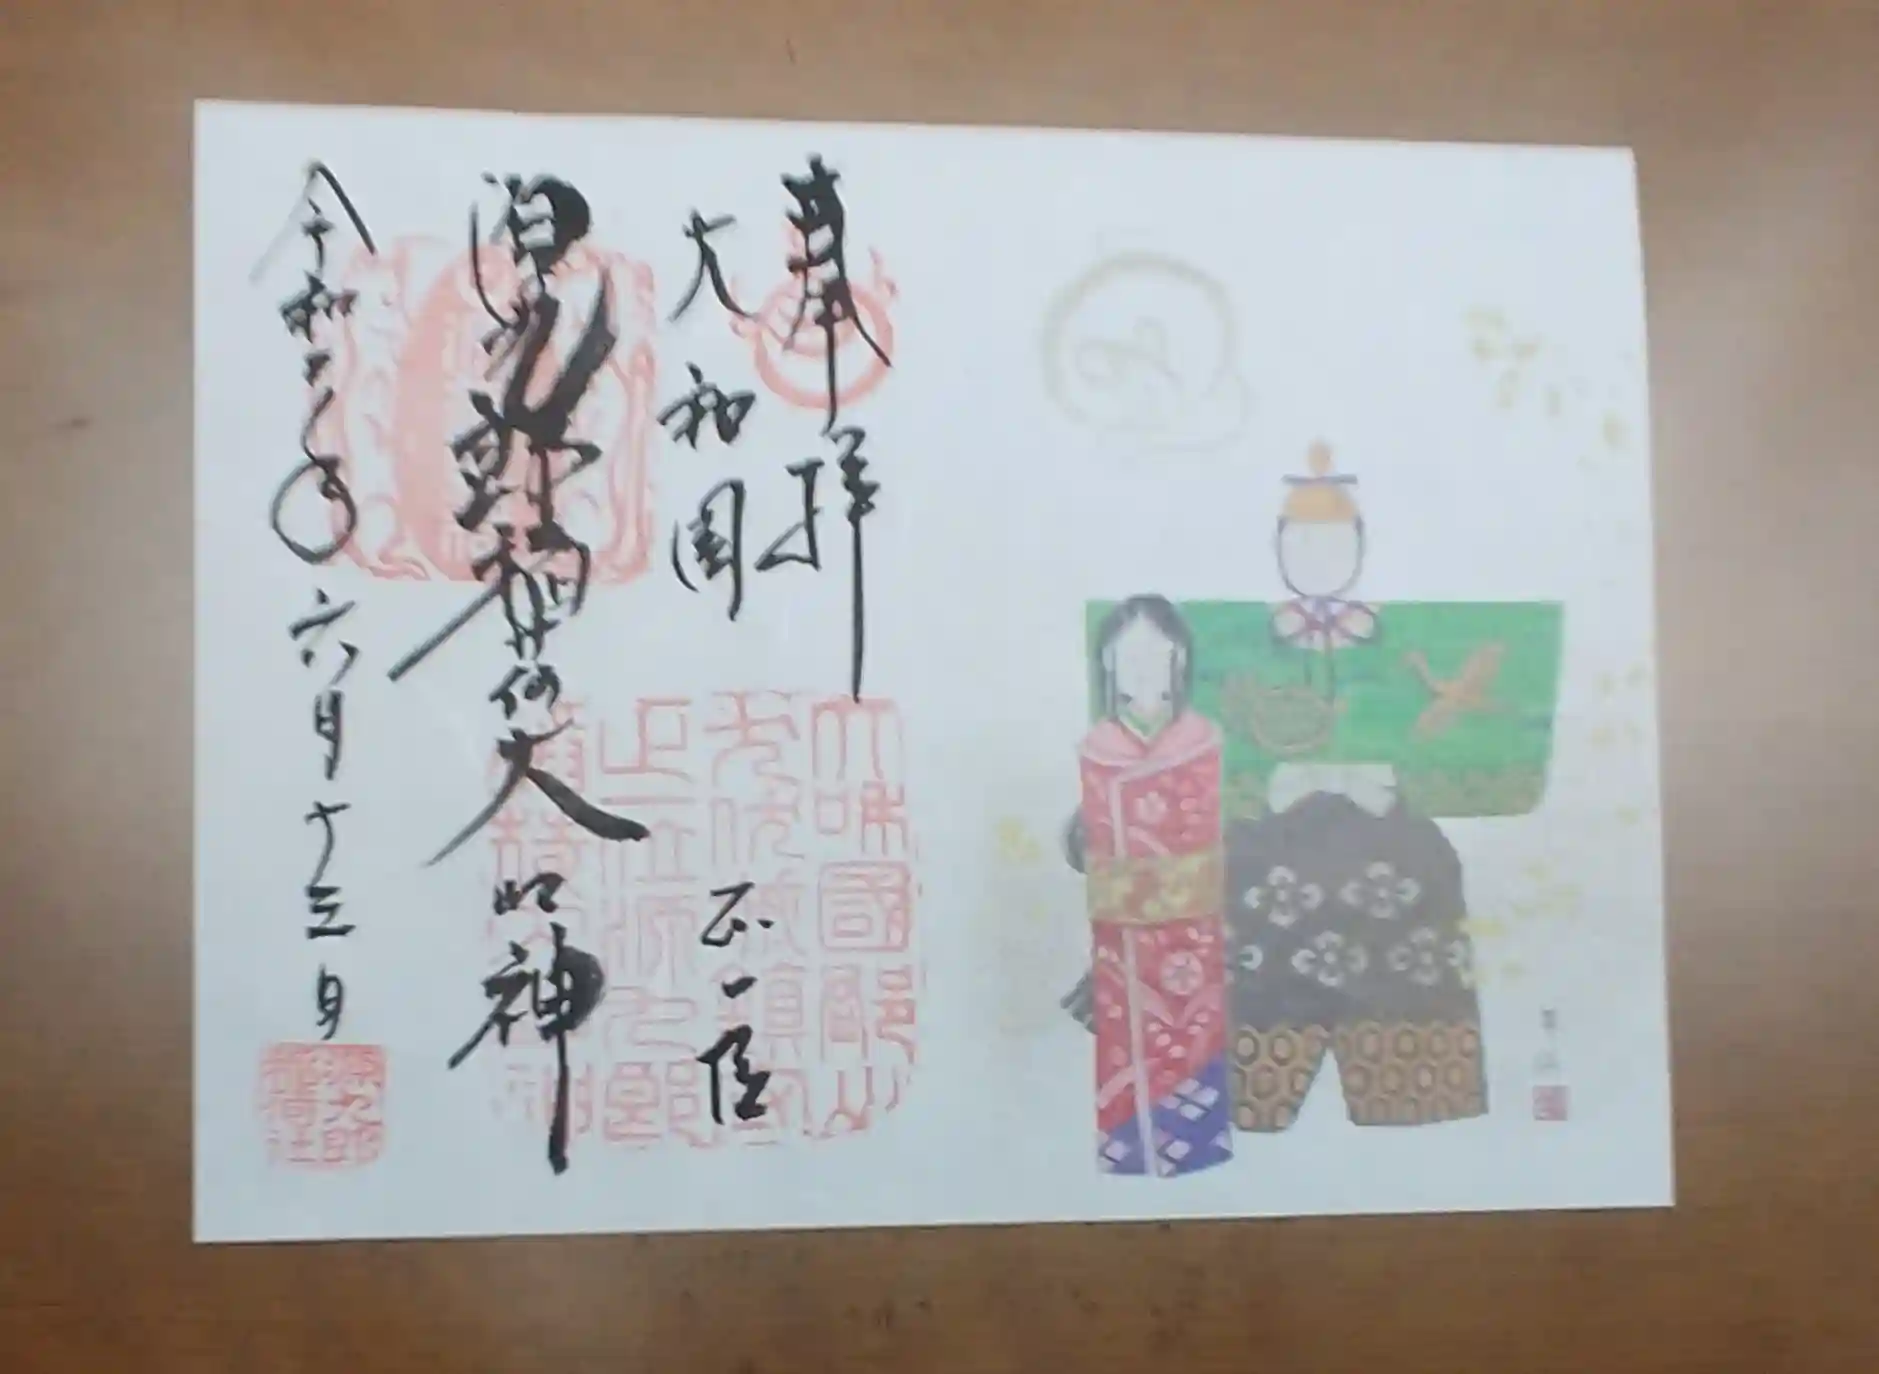 奉拝
大和国 正一位
源九郎稲荷大明神
令和二年六月十三日
正一位源九郎
源九郎
稲荷社